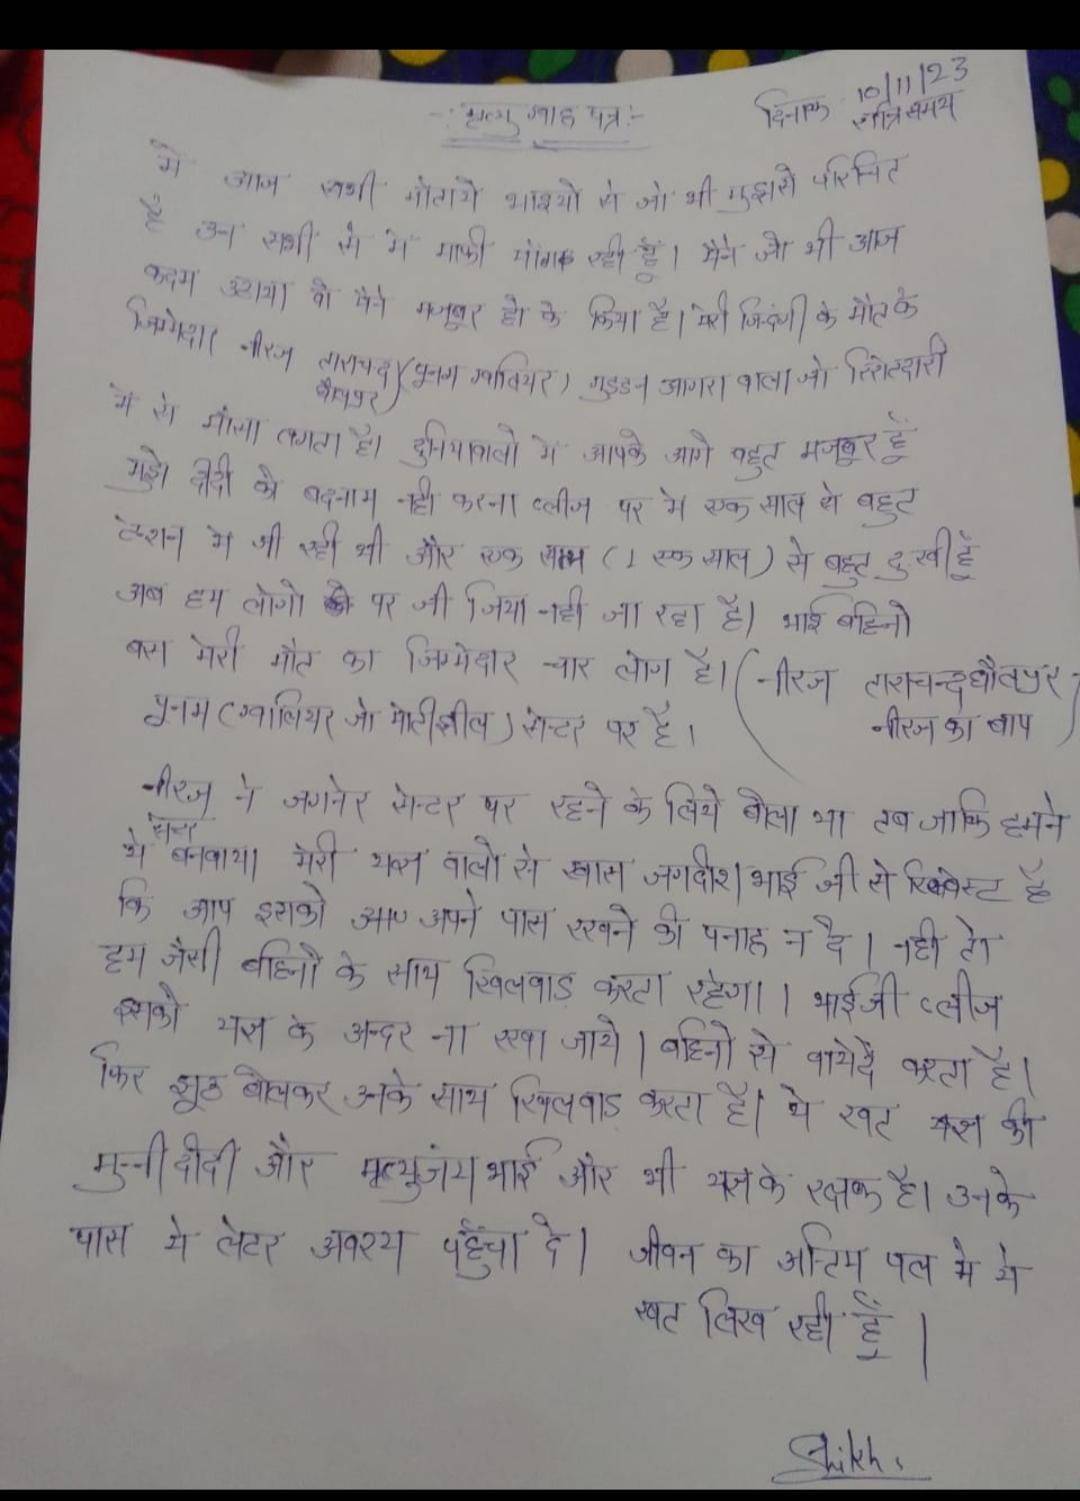 -: मृत्यु ग्वाह पत्र:-
दिनांक 10/11/23
रात्रि समय
मे आज सभी माताये भाइयो से जो भी मुझसे परिचित
है उन सभी से मे माफी मांग रही हूँ। मैने जो भी आज
कदम उठाया वो मैने मजबूर हो के किया है। मेरी जिंदगी के मौत के
जिम्मेदार नीरज ताराचंद धौलपुर (पूनम ग्वालियर) गुडडन आगरा वाला जो रिश्तेदारी
मे से मौसा लगता है। दुनियावालो मे आपके आगे बहुत मजबूर हूँ
मुझे दीदी को बदनाम नही करना प्लीज पर मे एक साल से बहुत
टेंशन मे जी रही थी और एक साल (1 एक साल) से बहुत दुःखी हूँ
अब हम लोगो पर जी जिया नही जा रहा है। भाई बहिनो
बस मेरी मौत का जिम्मेदार चार लोग है। (नीरज ताराचन्द धौलपुर
पूनम (ग्वालियर जो मोतीझील) सेन्टर पर है। नीरज का बाप)
नीरज ने जगनेर सेन्टर पर रहने के लिये बोला था तब जाकि हमने
ये सेन्टर बनवाया। मेरी यज्ञ वालो से खास जगदीश भाई जी से रिक्वेस्ट है
कि आप इसको आप अपने पास रखने की पनाह न दे। नही तो
हम जैसी बहिनो के साथ खिलवाड़ करता रहेगा। भाईजी प्लीज
इसको यज्ञ के अन्दर ना रखा जाये। बहिनो से वायेदे करता है।
फिर झूठ बोलकर उनके साथ खिलवाड़ करता है। ये खत यज्ञ की
मुन्नी दीदी और मृत्युजंय भाई और भी यज्ञ के रक्षक है। उनके
पास ये लेटर अवश्य पहुँचा दे। जीवन का अन्तिम पल मे ये
खत लिख रही हूँ।
Shikh.